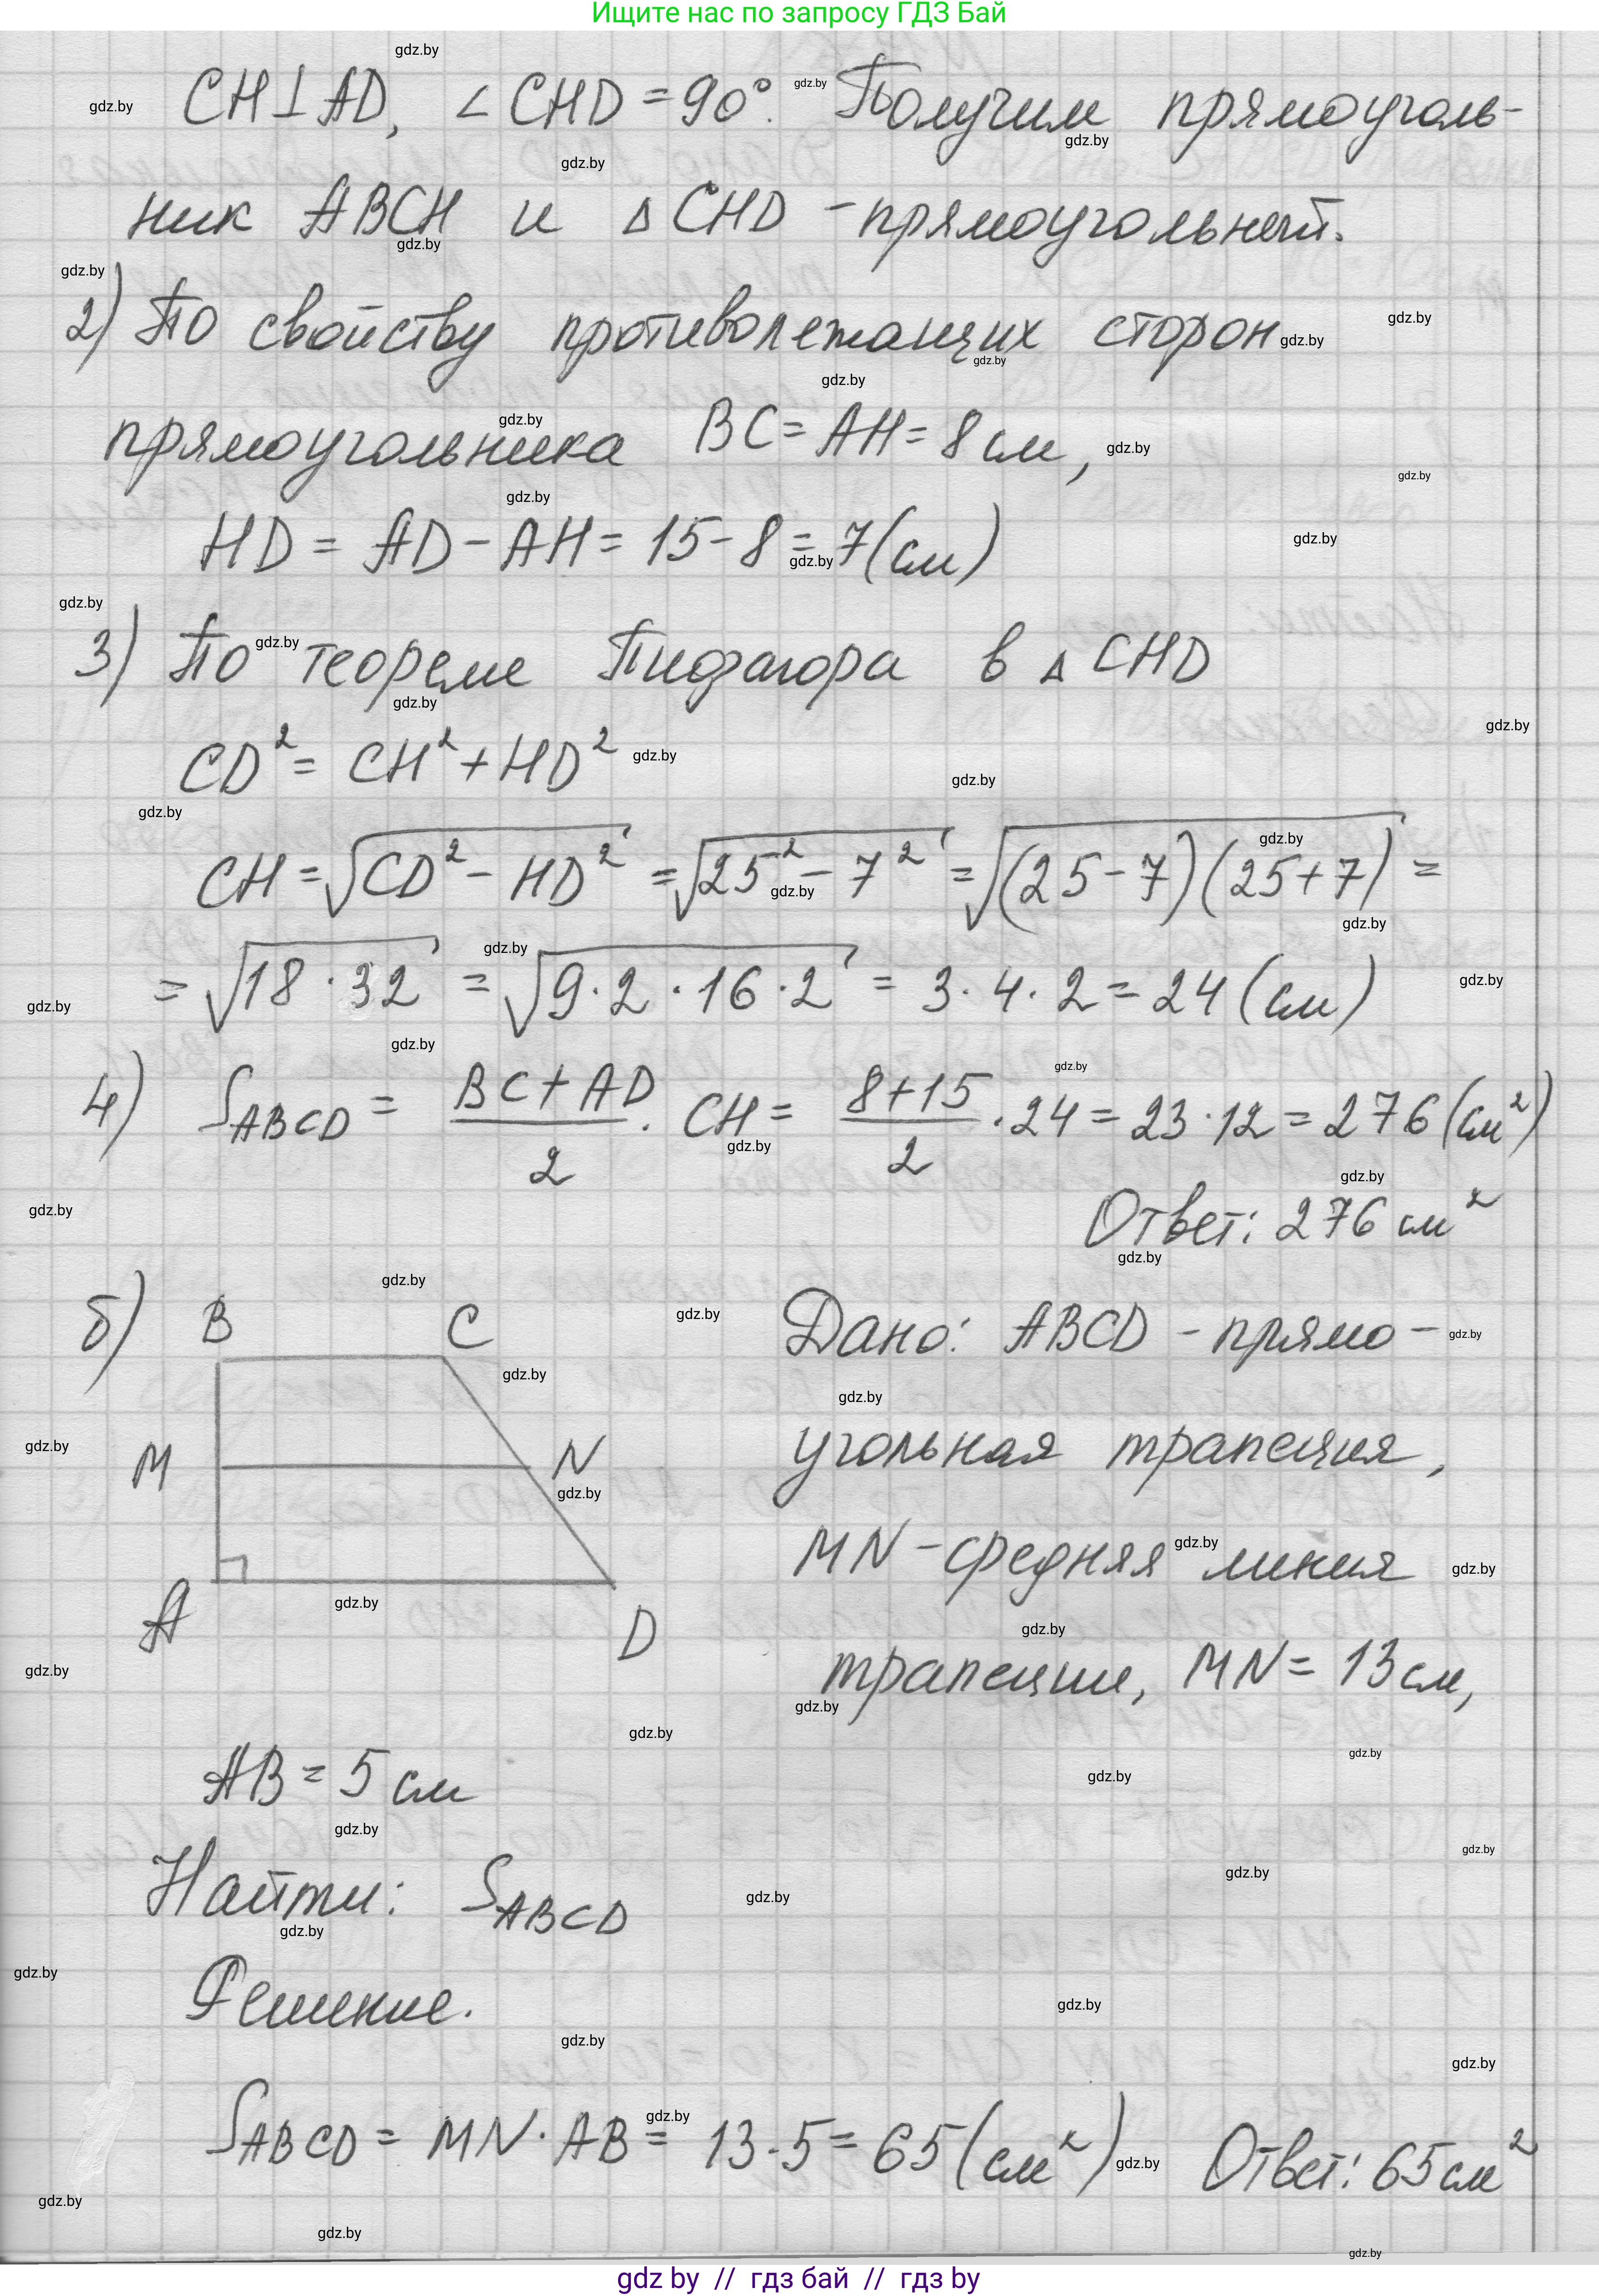 Ищите нас по запросу ГДЗ Бай
CH⊥AD, ∠CHD=90°. Получим прямоуголь-
ник ABCH и △CHD - прямоугольный.
2) По свойству противолежащих сторон
прямоугольника BC=AH=8 см,
HD = AD - AH = 15 - 8 = 7 (см)
3) По теореме Пифагора в △CHD
CD² = CH² + HD²
CH = √(CD² - HD²) = √(25² - 7²) = √((25-7)(25+7)) =
= √(18 · 32) = √(9 · 2 · 16 · 2) = 3 · 4 · 2 = 24 (см)
4) S_ABCD = (BC + AD)/2 · CH = (8+15)/2 · 24 = 23 · 12 = 276 (см²)
Ответ: 276 см²
б) B C
Дано: ABCD - прямо-
угольная трапеция,
M N
MN - средняя линия
A D
трапеции, MN = 13 см,
AB = 5 см
Найти: S_ABCD
Решение.
S_ABCD = MN · AB = 13 · 5 = 65 (см²) Ответ: 65 см²
gdz by // гдз бай // гдз by